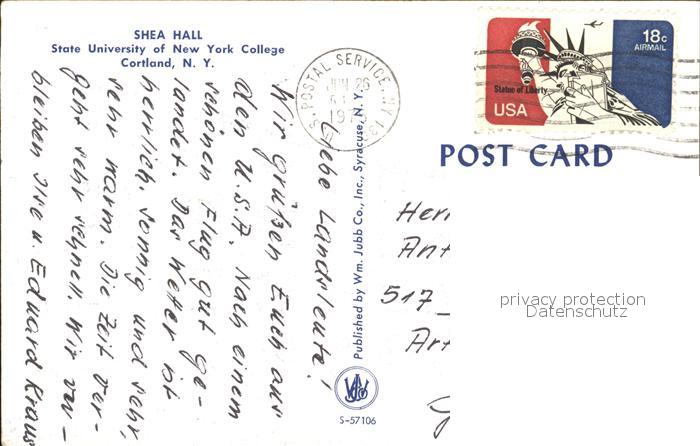 SHEA HALL
State University of New York College
Cortland, N. Y.
U.S. POSTAL SERVICE, NY
JUN 26
18c
AIRMAIL
Statue of Liberty
USA
POST CARD
Liebe Landsleute!
Wir grüßen Euch aus
den U.S.A. Nach einem
schönen Flug gut ge-
landet. Das Wetter ist
herrlich. Sonnig und sehr,
sehr warm. Die Zeit ver-
geht sehr schnell. Wir ver-
bleiben Ilse u. Eduard Kraus
Published by Wm. Jubb Co., Inc., Syracuse, N. Y.
S-57106
Herr
Ant
517
privacy protection
Datenschutz